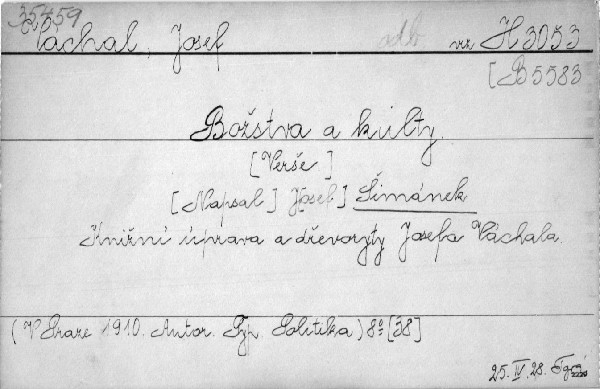 35459
Váchal, Josef adb vz H 3053
[B 5583
Božstva a kulty.
[Verše]
[Napsal] J[osef] Šimánek
Knižní úprava a dřevoryty Josefa Váchala.
(V Praze 1910. Autor. Typ. Politika) 8° [38]
25. IV. 28.